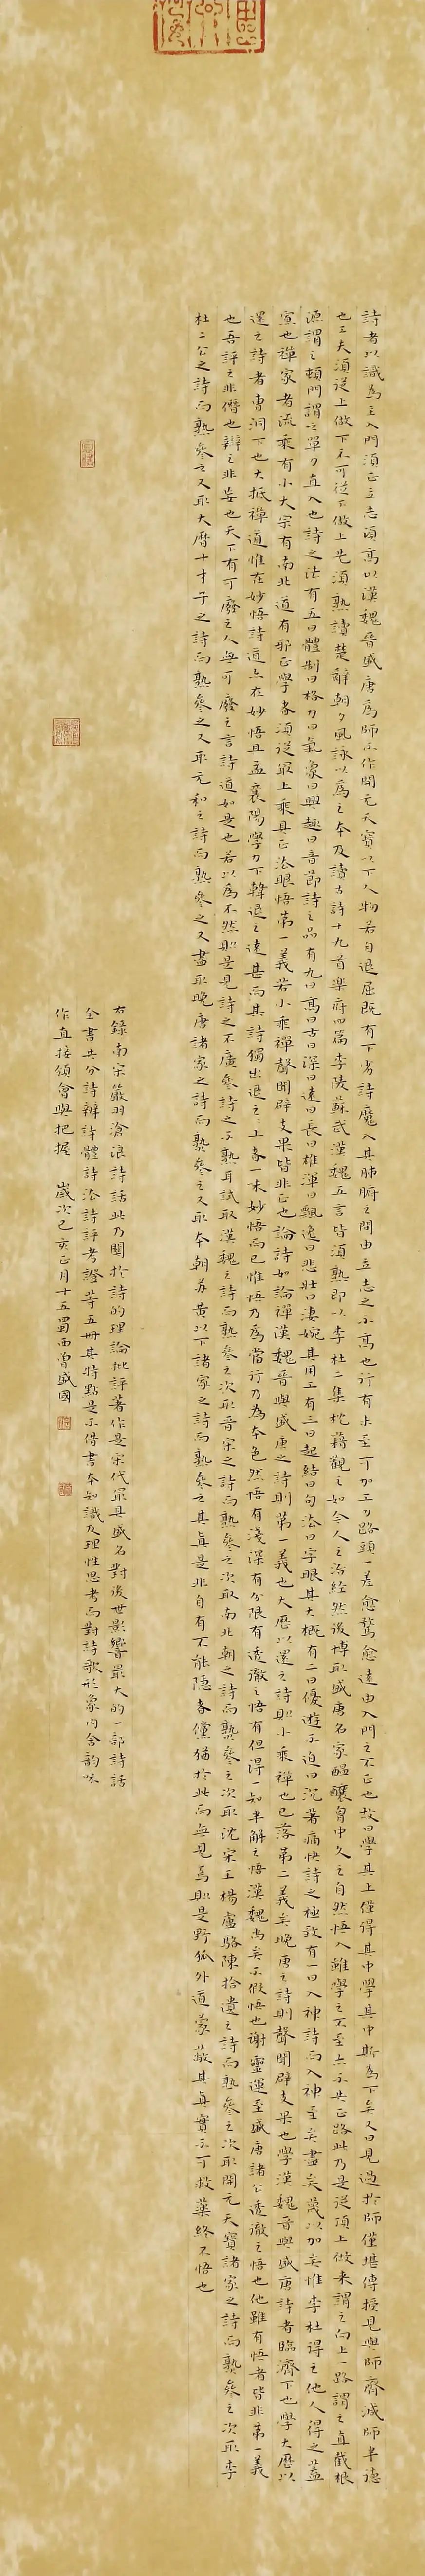 詩者以識為主入門須正立志須高以漢魏晉盛唐為師不作開元天寶以下人物若自退屈既有下劣詩魔入其肺腑之間由立志之不高也行有未至可加工力路頭一差愈騖愈遠由入門之不正也故曰學其上僅得其中學其中斯為下矣又曰見過於師僅堪傳授見與師齊減師半德
也工夫須從上做下不可從下做上先須熟讀楚辭朝夕風詠以為之本及讀古詩十九首樂府四篇李陵蘇武漢魏五言皆須熟即以李杜二集枕藉觀之如今人之治經然後博取盛唐名家醞釀胷中久之自然悟入雖學之不至亦不失正路此乃是從頂上做来謂之向上一路謂之直截根
源謂之頓門謂之單刀直入也詩之法有五曰體制曰格力曰氣象曰興趣曰音節詩之品有九曰高曰古曰深曰遠曰長曰雄渾曰飄逸曰悲壯曰凄婉其用工有三曰起結曰句法曰字眼其大概有二曰優遊不迫曰沉著痛快詩之極致有一曰入神詩而入神至矣盡矣蔑以加矣惟李杜得之他人得之蓋
寡也禪家者流乘有小大宗有南北道有邪正學者須從最上乘具正法眼悟第一義若小乘禪聲聞辟支果皆非正也論詩如論禪漢魏晉與盛唐之詩則第一義也大歷以還之詩則小乘禪也已落第二義矣晚唐之詩則聲聞辟支果也學漢魏晉與盛唐詩者臨濟下也學大歷以
還之詩者曹洞下也大抵禪道惟在妙悟詩道亦在妙悟且孟襄陽學力下韓退之遠甚而其詩獨出退之上者一味妙悟而已惟悟乃為當行乃為本色然悟有淺深有分限有透徹之悟有但得一知半解之悟漢魏尚矣不假悟也謝靈運至盛唐諸公透徹之悟也他雖有悟者皆非第一義
也吾評之非僭也辯之非妄也天下有可廢之人無可廢之言詩道如是也若以為不然則是見詩之不廣參詩之不熟耳試取漢魏之詩而熟參之次取晉宋之詩而熟參之次取南北朝之詩而熟參之次取沈宋王楊盧駱陳拾遺之詩而熟參之次取開元天寶諸家之詩而熟參之次取李
杜二公之詩而熟參之又取大曆十才子之詩而熟參之又取元和之詩而熟參之又盡取晚唐諸家之詩而熟參之又取本朝蘇黃以下諸家之詩而熟參之其真是非自有不能隱者儻猶於此而無見焉則是野狐外道蒙蔽其真實不可救藥終不悟也
右錄南宋嚴羽滄浪詩話此乃關於詩的理論批評著作是宋代最具盛名對後世影響最大的一部詩話
全書共分詩辯詩體詩法詩評考證等五冊其特點是不借書本知識及理性思考而對詩歌形象内含韵味
作直接領會與把握 歲次己亥正月十五蜀西曾盛國